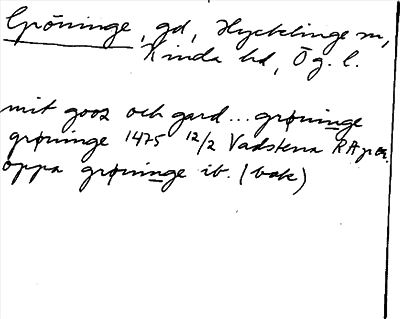 Gröninge, gd, Hycklinge sn,
Kinda hd, Ög. l.
mit gooz och gard... grøninge
grøninge 1475 12/2 Vadstena RAp or.
oppa grøninge ib. (bak)